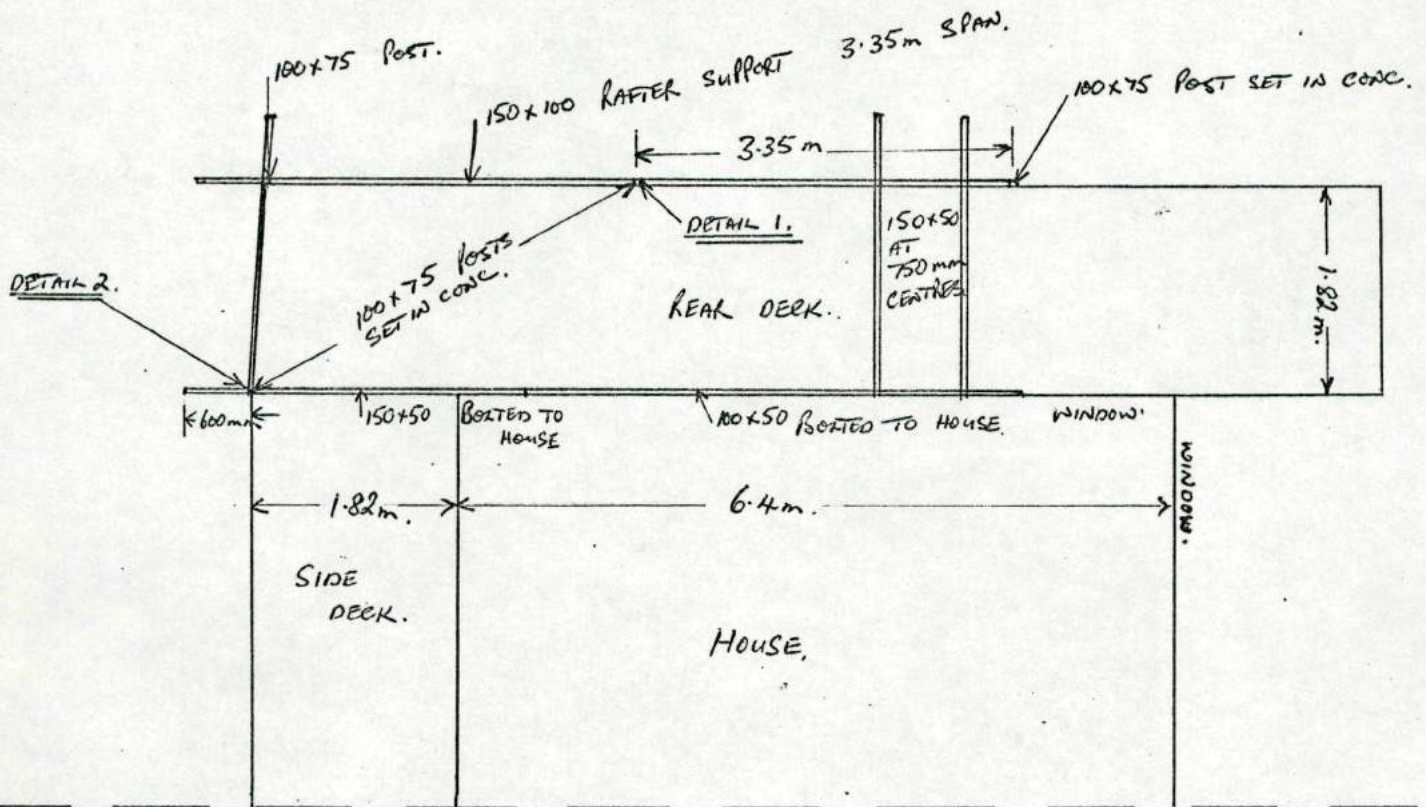 100x75 POST.
150x100 RAFTER SUPPORT 3.35m SPAN.
100x75 POST SET IN CONC.
3.35m
DETAIL 1.
150x50
AT
750mm
CENTRES
DETAIL 2.
100x75 POSTS
SET IN CONC.
REAR DECK..
1.82m.
600mm
150x50
BOLTED TO
HOUSE
100x50 BOLTED TO HOUSE.
WINDOW.
WINDOW.
1.82m.
6.4m.
SIDE
DECK.
HOUSE.